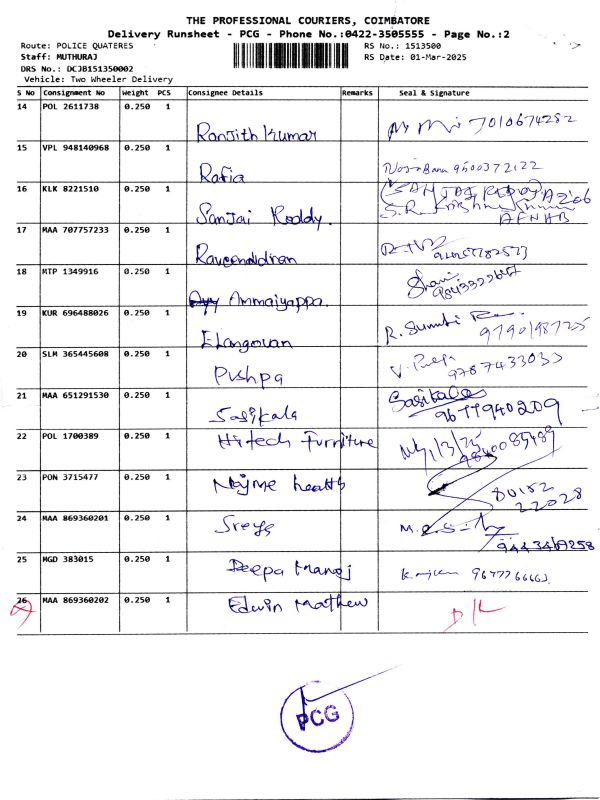 THE PROFESSIONAL COURIERS, COIMBATORE
Delivery Runsheet - PCG - Phone No.:0422-3505555 - Page No.:2
Route: POLICE QUATERES RS No.: 1513500
Staff: MUTHURAJ RS Date: 01-Mar-2025
DRS No.: DCJB151350002
Vehicle: Two Wheeler Delivery
S No Consignment No Weight PCS Consignee Details Remarks Seal & Signature
14 POL 2611738 0.250 1
Ranjith Kumar 7010674282
15 VPL 948140968 0.250 1
Rafia 9500372122
16 KLK 8221510 0.250 1
Sanjai Reddy
17 MAA 707757233 0.250 1
18 MTP 1349916 0.250 1
Ammaiyappa
19 KUR 696488026 0.250 1
Elangovan R. Sumathi
20 SLM 365445608 0.250 1
Pushpa 9787433033
21 MAA 651291530 0.250 1
Sasikala Sasikala 9677940209
22 POL 1700389 0.250 1
Hitech Furniture
23 PON 3715477 0.250 1
health 80152 22028
24 MAA 869360201 0.250 1
Sreys 9443469258
25 MGD 383015 0.250 1
Deepa Manoj 9677766663
26 MAA 869360202 0.250 1
Edwin Mathew D/L
PCG